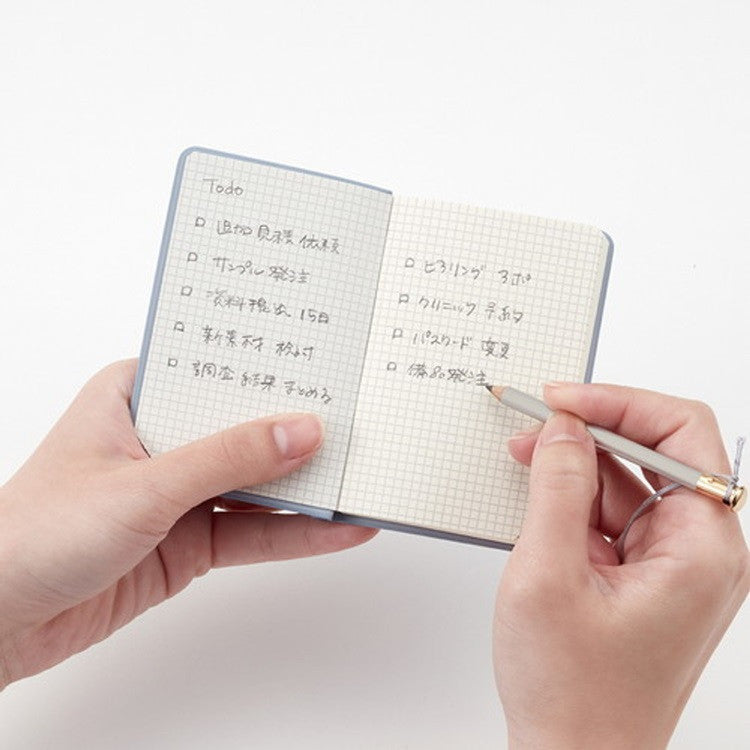 Todo
□ 追加見積依頼
□ サンプル発注
□ 資料提出 15日
□ 新素材 検討
□ 調査結果まとめる
□ ヒアリング
□ クリニック予約
□ パスワード変更
□ 備品発注